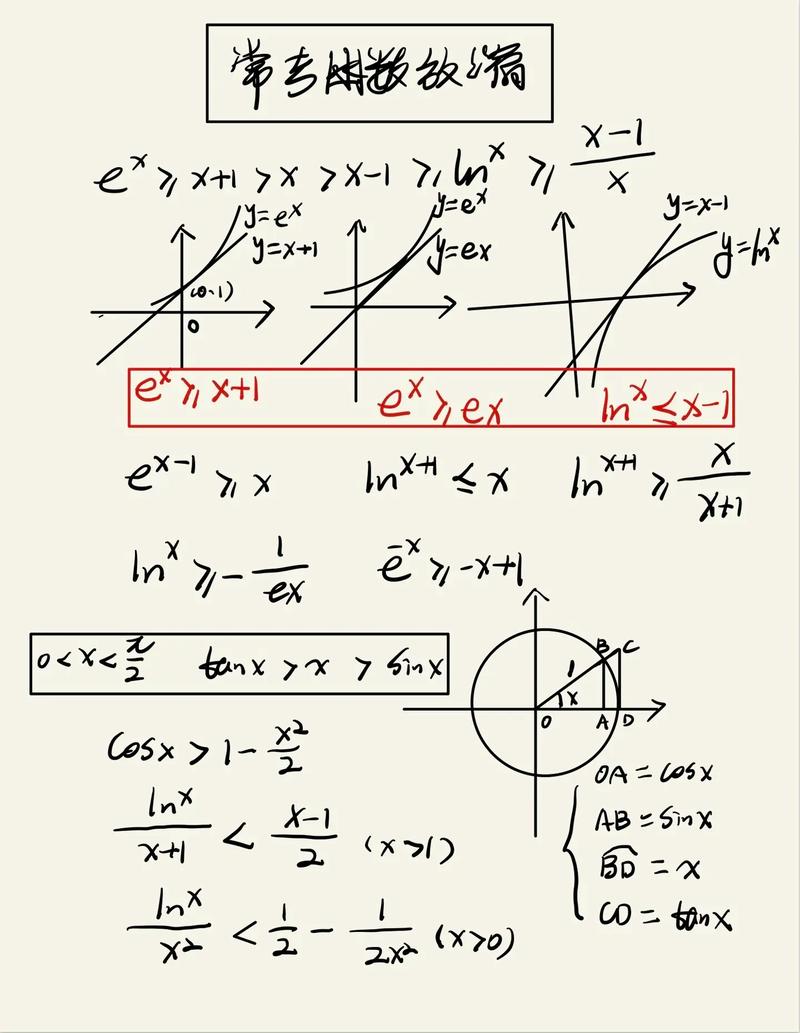 常考函数放缩
eˣ ⩾ x+1 > x > x-1 ⩾ lnˣ ⩾ (x-1)/x
y=eˣ
y=x+1
(0,1)
0
y=eˣ
y=ex
y=x-1
y=lnˣ
eˣ ⩾ x+1 eˣ ⩾ ex lnˣ ≤ x-1
eˣ⁻¹ ⩾ x lnˣ⁺¹ ≤ x lnˣ⁺¹ ⩾ x/(x+1)
lnˣ ⩾ -1/(ex) e⁻ˣ ⩾ -x+1
0<x<π/2 tanx > x > sinx
B C
1
x
O A D
cosx > 1 - x²/2
lnˣ/(x+1) < (x-1)/2 (x>1)
lnˣ/x² < 1/2 - 1/(2x²) (x>0)
OA = cosx
AB = sinx
B͡D = x
CD = tanx